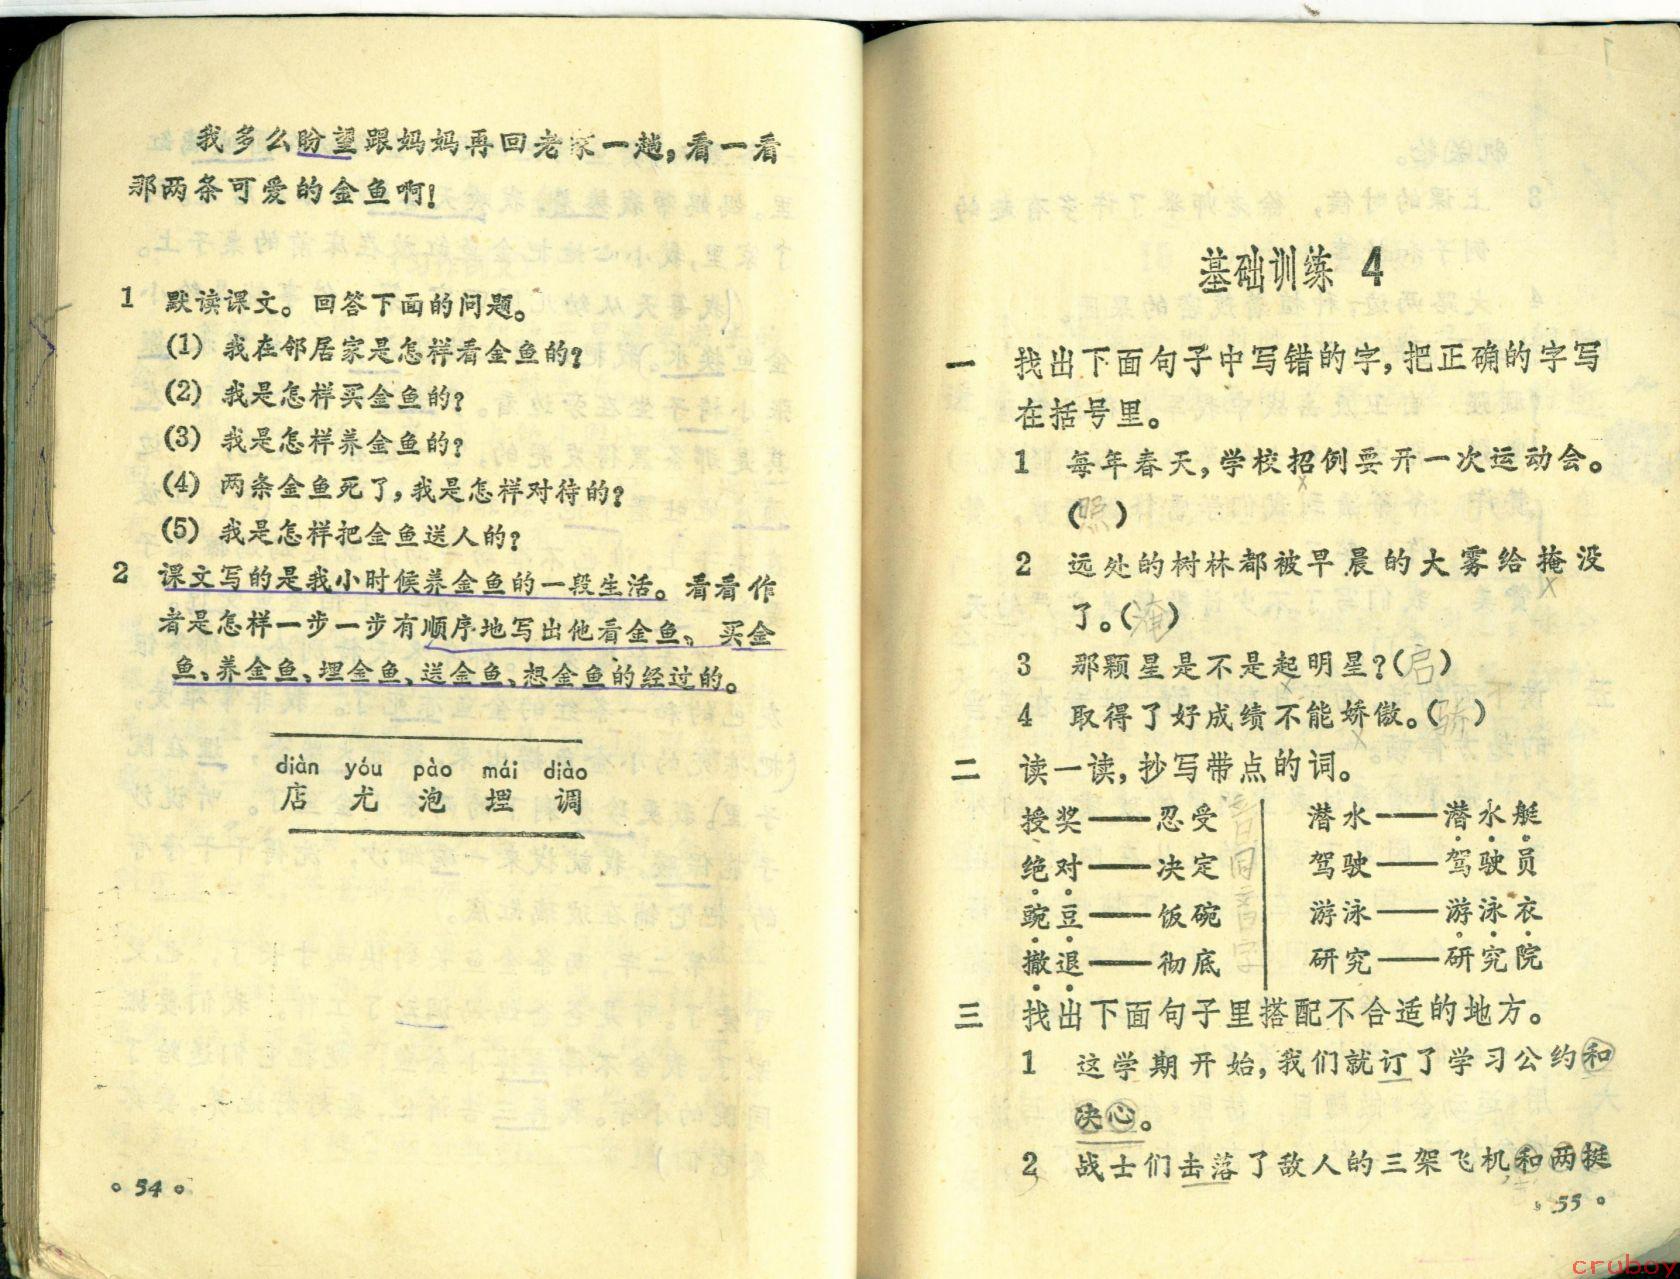 我多么盼望跟妈妈再回老家一趟，看一看
那两条可爱的金鱼啊！
1 默读课文。回答下面的问题。
(1) 我在邻居家是怎样看金鱼的？
(2) 我是怎样买金鱼的？
(3) 我是怎样养金鱼的？
(4) 两条金鱼死了，我是怎样对待的？
(5) 我是怎样把金鱼送人的？
2 课文写的是我小时候养金鱼的一段生活。看看作
者是怎样一步一步有顺序地写出他看金鱼、买金
鱼、养金鱼、埋金鱼、送金鱼、想金鱼的经过的。
diàn yóu pào mái diào
店 尤 泡 埋 调
54
基础训练 4
一 找出下面句子中写错的字，把正确的字写
在括号里。
1 每年春天，学校招例要开一次运动会。
(照)
2 远处的树林都被早晨的大雾给掩没
了。(淹)
3 那颗星是不是起明星？(启)
4 取得了好成绩不能娇傲。(骄)
二 读一读，抄写带点的词。
授奖——忍受 潜水——潜水艇
绝对——决定 驾驶——驾驶员
豌豆——饭碗 游泳——游泳衣
撤退——彻底 研究——研究院
音同音字
三 找出下面句子里搭配不合适的地方。
1 这学期开始，我们就订了学习公约和
决心。
2 战士们击落了敌人的三架飞机和两挺
55
cruboy